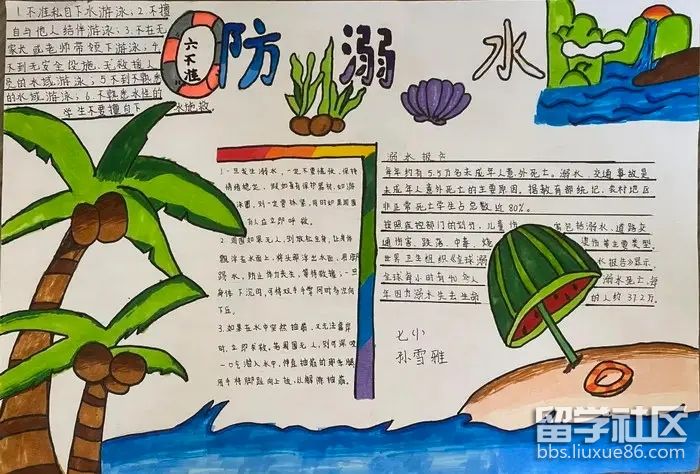 1 不准私自下水游泳；2 不擅
自与他人结伴游泳；3 不在无
家长或老师带领下游泳；4
不到无安全设施、无救援人
员的水域游泳；5 不到不熟悉
的水域游泳；6 不熟悉水性的
学生不要擅自下水施救
六不准
防溺水
1、一旦发生溺水，一定不要慌张，保持
情绪稳定，
有人立即呼救。
2、周围如果无人，则放松全身，让身体
漂浮在水面上，将头部浮出水面，用脚
踢水，防止体力丧失，等待救援，一旦
身体下沉时，可将双手手掌同时多次向
下压。
3、如果在水中突然抽筋，又无法靠岸
时，立即求救。如周围无人，则可深吸
一口气潜入水中，伸直抽筋的那条腿
用手将脚趾向上扳，以解除抽筋。
溺水报告
每年约有5.5万名未成年人意外死亡。溺水、交通事故是
未成年人意外死亡的主要原因。据教育部统记，农村地区
非正常死亡学生占总数近80%。
按照疾控部门的划分，儿童伤 包括溺水、道路交
通伤害、跌落、中毒、烧 烫伤等主要类型。
世界卫生组织《全球溺 水报告》显示，
全球每小时有40多人 溺水死亡，每
年因为溺水失去生命 的人约37.2万。
七小
孙雪雅
留学社区
bbs.liuxue86.com